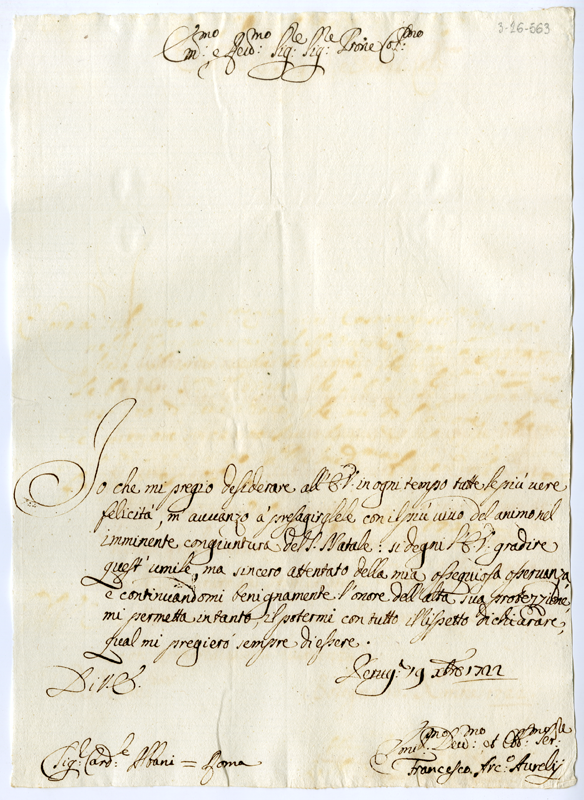 3-26-663
Em.mo e Rev.mo Sig.re Sig.re Prone Col.mo
Io che mi pregio desiderare all' E.V. in ogni tempo tutte le più vere
felicità, m' avvanzo à presagirgliele con il più vivo del animo nel
imminente congiuntura del S. Natale: si degni l' E.V. gradire
quest' umile, ma sincero attentato della mia ossequiosa osservanza,
e continuandomi benignamente l' onore dell' alta Sua protezzione
mi permetta intanto, il potermi con tutto il rispetto dichiarare,
qual mi pregierò sempre di essere.
Di V.E. Perug.a 19 Xbre 1722
Sig.r Card.le Albani = Roma
Um.mo Dev.mo et Obb.mo Ser.re
Francesco Arc.o Aurelij